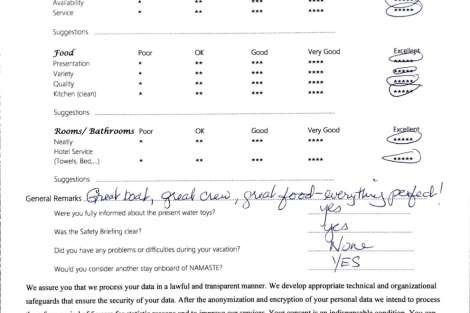 Availability * ** *** **** *****
Service * ** *** **** *****
Suggestions
Food Poor OK Good Very Good Excellent
Presentation * ** *** **** *****
Variety * ** *** **** *****
Quality * ** *** **** *****
Kitchen (clean) * ** *** **** *****
Suggestions
Rooms/ Bathrooms Poor OK Good Very Good Excellent
Neatly * ** *** **** *****
Hotel Service
(Towels, Bed,...) * ** *** **** *****
Suggestions
General Remarks Great boat, great crew, great food - everything perfect!
Were you fully informed about the present water toys? yes
Was the Safety Briefing clear? yes
Did you have any problems or difficulties during your vacation? None
Would you consider another stay onboard of NAMASTE? YES
We assure you that we process your data in a lawful and transparent manner. We develop appropriate technical and organizational
safeguards that ensure the security of your data. After the anonymization and encryption of your personal data we intend to process